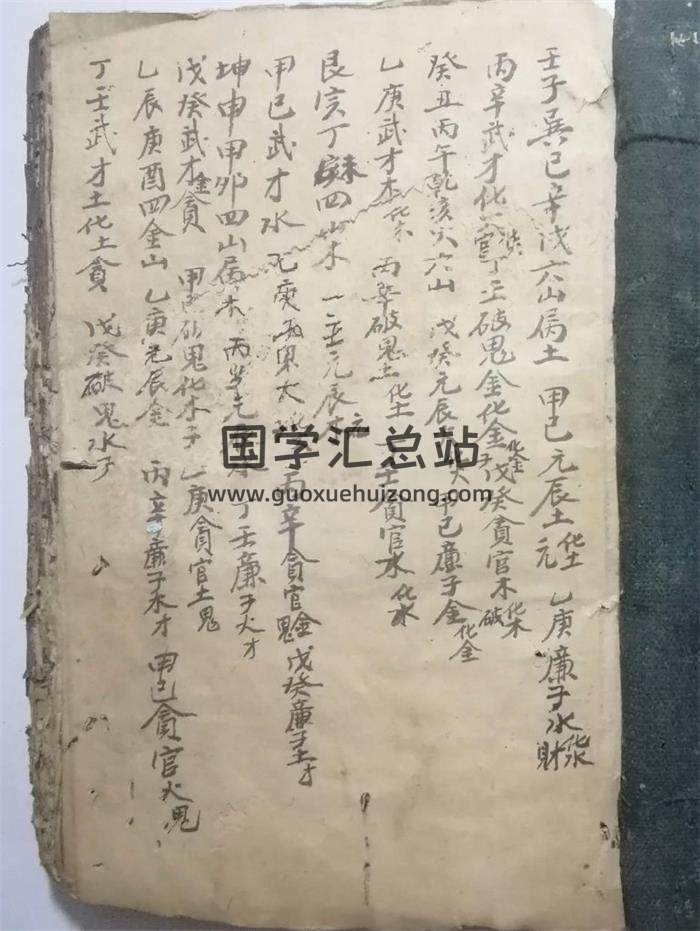 壬子巽巳辛戌六山属土 甲巳元辰土元化土 乙庚廉子水財化水
丙辛武才化官丁壬破鬼金化金化金戊癸貪官木破化木
癸丑丙午乾亥六山 戊癸元辰火 甲巳廉子金化金
乙庚武才木化木 丙辛破鬼土化土 壬貪官水化水
艮寅丁未四山木 壬元辰木元
甲巳武才水 乙庚火 丙辛貪官金鬼戊癸廉子土才
坤申甲卯四山属木 丙辛元 丁壬廉子火才
戊癸武才金貪 甲巳破鬼化木子 乙庚貪官土鬼
乙辰庚酉四金山 乙庚元辰金 丙辛廉子木才 甲巳貪官火鬼
丁壬武才土化土貪 戊癸破鬼水子
国学汇总站
www.guoxuehuizong.com